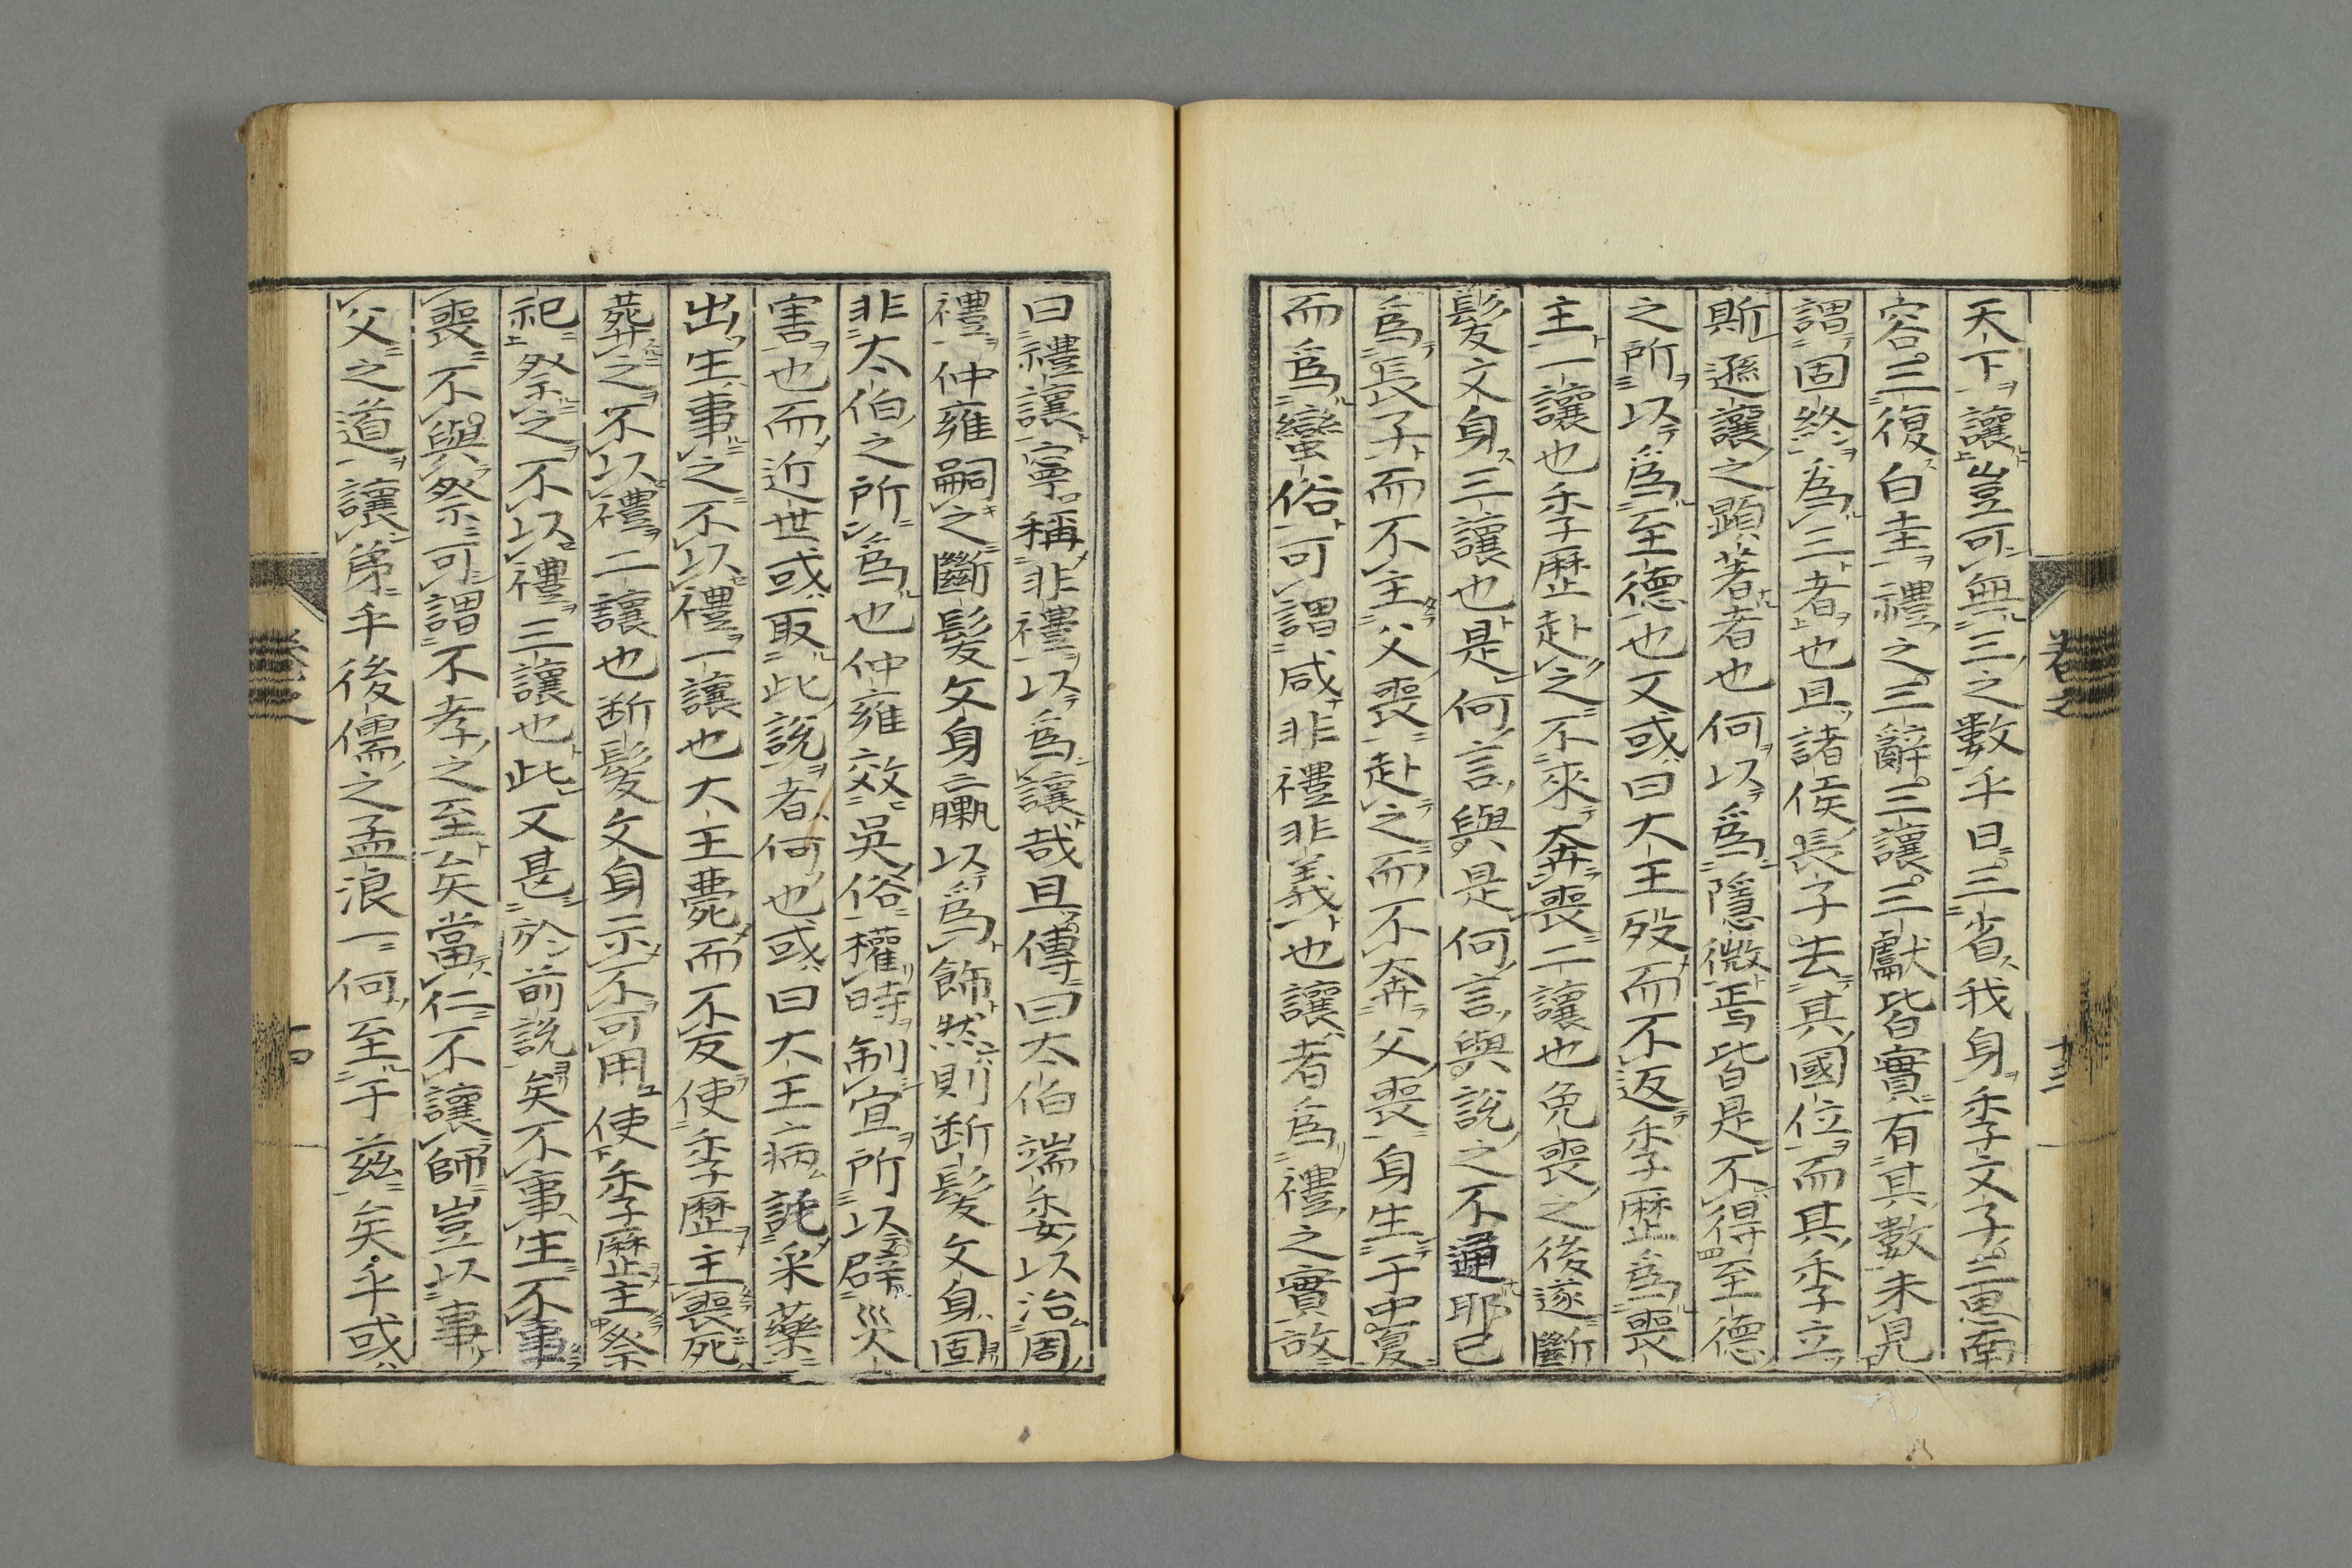 天下讓豈可無三之數乎曰三省我身季文子三思南
容三復白圭禮之三辭三讓三獻皆實有其數未見
謂固終爲三者也且諸侯長子去其國位而其季子立
斯遜讓之顕著者也何以爲隱微焉皆是不得至德
之所以爲至德也又或曰大王歿而不返季歷爲喪
主一讓也季歷赴之不來奔喪二讓也免喪之後遂斷
髮文身三讓也是何言與是何言與說之不通耶已
爲長子而不主父喪赴之而不奔父喪身生于中夏
而爲蠻俗可謂咸非禮非義也讓者爲禮之實故
曰禮讓寧稱非禮以爲讓哉且傳曰太伯端委以治周
禮仲雍嗣之斷髮文身臝以爲飾然則断髮文身固
非太伯之所爲也仲雍效吳俗權時制宜所以辟災
害也而近世或取此說者何也或曰大王病託采藥
出生事之不以禮一讓也大王薨而不反使季歷主喪死
葬之不以禮二讓也断髮文身示不可用使季歷主祭
祀祭之不以禮三讓也此又甚於前說矣不事生不事
喪不與祭可謂不孝之至矣當仁不讓師豈以事
父之道讓弟乎後儒之孟浪一何至于茲矣乎或
卷之
十三
卷之
十四